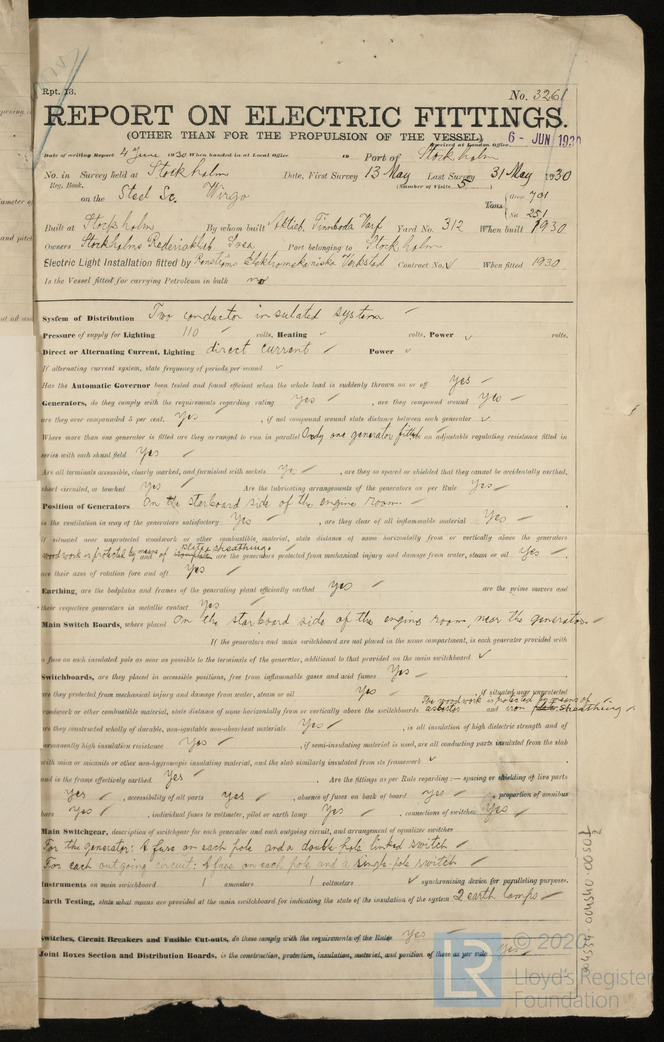 Rpt. 13.
No. 3261
REPORT ON ELECTRIC FITTINGS.
(OTHER THAN FOR THE PROPULSION OF THE VESSEL)
Received at London Office 6 - JUN 1930
Date of writing Report 4 June 1930 When handed in at Local Office 19 Port of Stockholm
No. in Survey held at Stockholm Date, First Survey 13 May Last Survey 31 May 1930
Reg. Book. (Number of Visits 5)
on the Steel Sc. Wirgo Tons { Gross 701
Net 251
Built at Stockholm By whom built Aktieb. Finnboda Varf Yard No. 312 When built 1930
Owners Stockholms Rederiaktieb. Svea Port belonging to Stockholm
Electric Light Installation fitted by Elektromekaniska Verkstad Contract No. ✓ When fitted 1930
Is the Vessel fitted for carrying Petroleum in bulk no
System of Distribution Two conductor insulated system
Pressure of supply for Lighting 110 volts, Heating ✓ volts, Power ✓ volts.
Direct or Alternating Current, Lighting direct current Power ✓
If alternating current system, state frequency of periods per second ✓
Has the Automatic Governor been tested and found efficient when the whole load is suddenly thrown on or off Yes
Generators, do they comply with the requirements regarding rating Yes , are they compound wound Yes
are they over compounded 5 per cent. Yes , if not compound wound state distance between each generator ✓
Where more than one generator is fitted are they arranged to run in parallel Only one generator fitted an adjustable regulating resistance fitted in
series with each shunt field Yes
Are all terminals accessible, clearly marked, and furnished with sockets Yes , are they so spaced or shielded that they cannot be accidentally earthed,
short circuited, or touched Yes Are the lubricating arrangements of the generators as per Rule Yes
Position of Generators On the starboard side of the engine room.
is the ventilation in way of the generators satisfactory Yes , are they clear of all inflammable material Yes
if situated near unprotected woodwork or other combustible material, state distance of same horizontally from or vertically above the generators
woodwork is protected by means of sheathing. and are the generators protected from mechanical injury and damage from water, steam or oil Yes
are their axes of rotation fore and aft Yes
Earthing, are the bedplates and frames of the generating plant efficiently earthed Yes are the prime movers and
their respective generators in metallic contact Yes
Main Switch Boards, where placed On the starboard side of the engine room, near the generator.
If the generators and main switchboard are not placed in the same compartment, is each generator provided with
a fuse on each insulated pole as near as possible to the terminals of the generator, additional to that provided on the main switchboard ✓
Switchboards, are they placed in accessible positions, free from inflammable gases and acid fumes Yes
are they protected from mechanical injury and damage from water, steam or oil Yes if situated near unprotected
woodwork or other combustible material, state distance of same horizontally from or vertically above the switchboards The woodwork is protected by means of asbestos and iron sheathing
are they constructed wholly of durable, non-ignitable non-absorbent materials Yes , is all insulation of high dielectric strength and of
permanently high insulation resistance Yes , if semi-insulating material is used, are all conducting parts insulated from the slab
with mica or micanite or other non-hygroscopic insulating material, and the slab similarly insulated from its framework ✓
and is the frame effectively earthed Yes Are the fittings as per Rule regarding :— spacing or shielding of live parts
Yes , accessibility of all parts Yes , absence of fuses on back of board Yes , proportion of omnibus
bars Yes , individual fuses to voltmeter, pilot or earth lamp Yes , connections of switches Yes
Main Switchgear, description of switchgear for each generator and each outgoing circuit, and arrangement of equalizer switches
For the generator: A fuse on each pole and a double pole linked switch
For each outgoing circuit: A fuse on each pole and a single pole switch
Instruments on main switchboard 1 ammeters 1 voltmeters ✓ synchronising device for paralleling purposes.
Earth Testing, state what means are provided at the main switchboard for indicating the state of the insulation of the system 2 earth lamps
Switches, Circuit Breakers and Fusible Cut-outs, do these comply with the requirements of the Rules Yes
Joint Boxes Section and Distribution Boards, is the construction, protection, insulation, material, and position of these as per rule Yes
© 2020
Lloyd's Register
Foundation